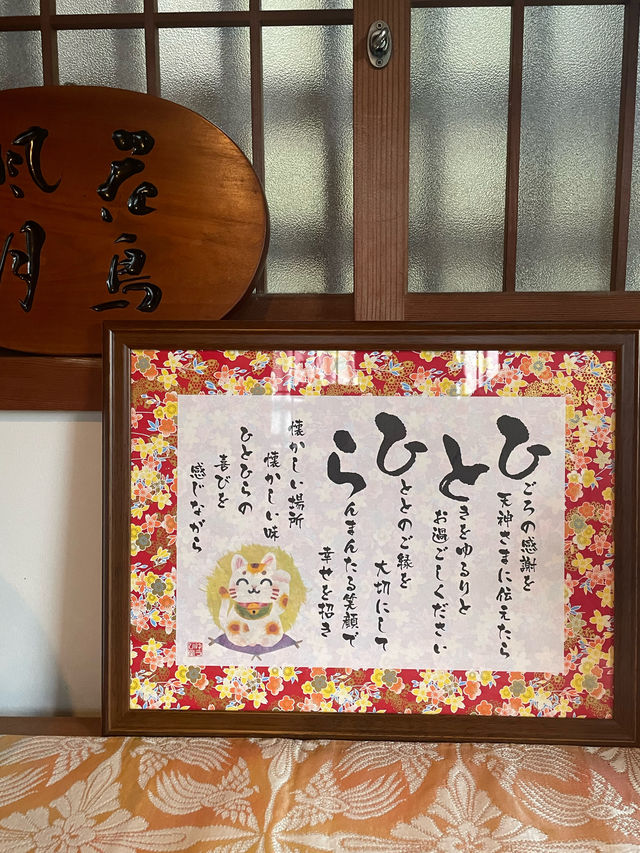 花鳥
風月
ひごろの感謝を
天神さまに伝えたら
ときをゆるりと
お過ごしください
ひととのご縁を
大切にして
らんまんたる笑顔で
幸せを招き
懐かしい場所
懐かしい味
ひとひらの
喜びを
感じながら